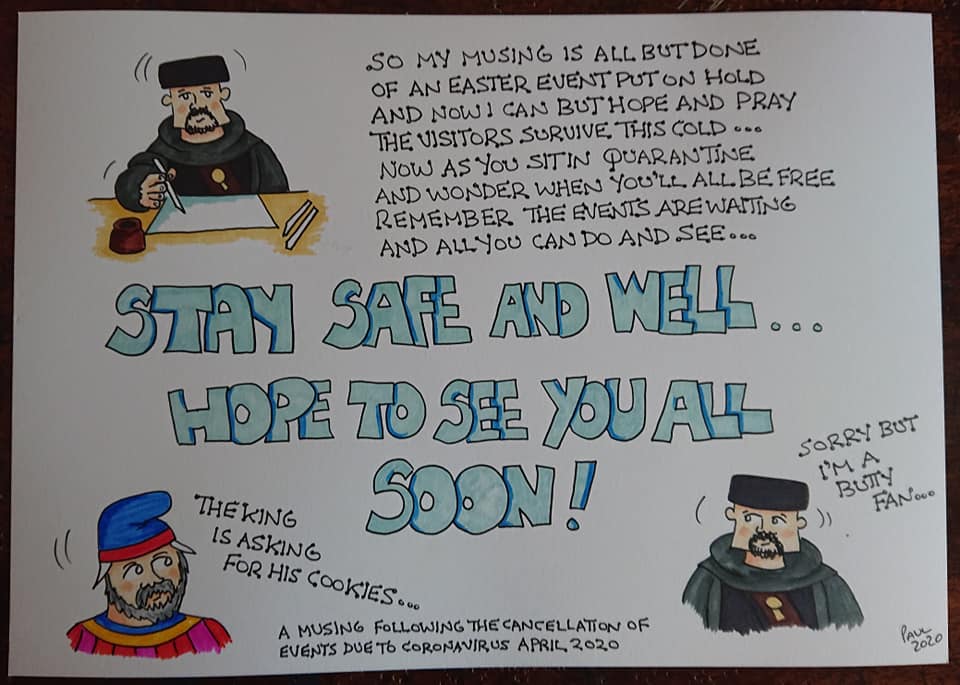 SO MY MUSING IS ALL BUT DONE
OF AN EASTER EVENT PUT ON HOLD
AND NOW I CAN BUT HOPE AND PRAY
THE VISITORS SURVIVE THIS COLD...
NOW AS YOU SIT IN QUARANTINE
AND WONDER WHEN YOU'LL ALL BE FREE
REMEMBER THE EVENTS ARE WAITING
AND ALL YOU CAN DO AND SEE...
STAY SAFE AND WELL...
HOPE TO SEE YOU ALL
SOON!
THE KING
IS ASKING
FOR HIS COOKIES...
SORRY BUT
I'M A
BUTTY
FAN...
A MUSING FOLLOWING THE CANCELLATION OF
EVENTS DUE TO CORONAVIRUS APRIL 2020
PAUL
2020